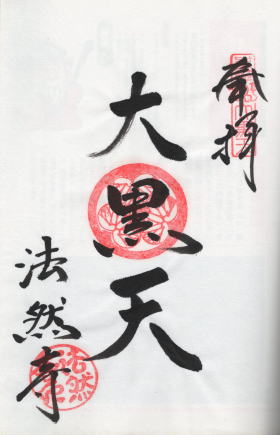 奉拝
大黒天
法然寺